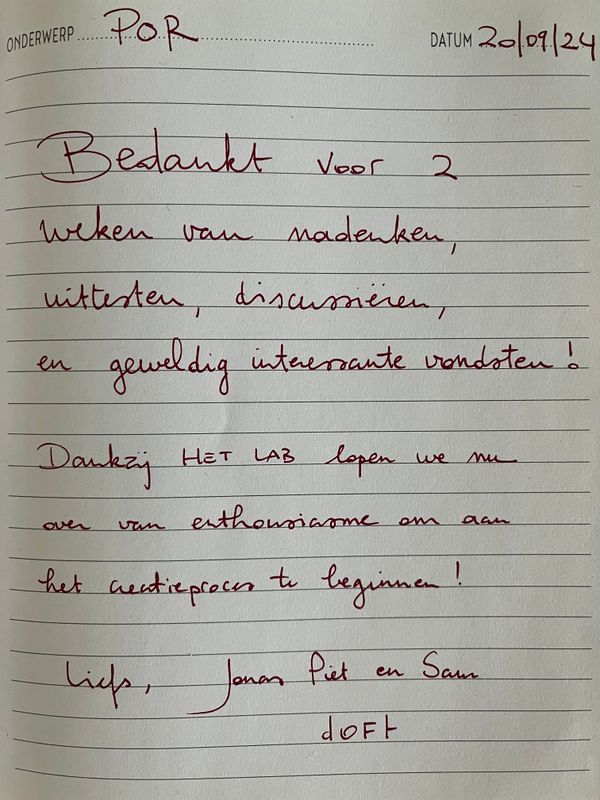 ONDERWERP POR DATUM 20/09/24
Bedankt voor 2
weken van nadenken,
uittesten, discussiëren,
en geweldig interessante vondsten!
Dankzij HET LAB lopen we nu
over van enthousiasme om aan
het creatieproces te beginnen!
Liefs, Jonas Piet en Sam
dOFt